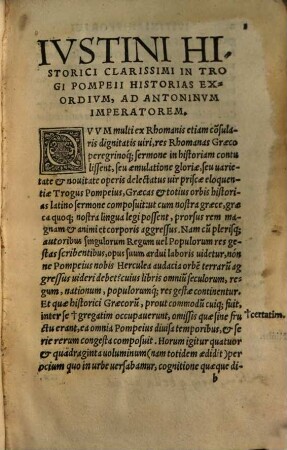 IVSTINI HI-
STORICI CLARISSIMI IN TRO
GI POMPEII HISTORIAS EX=
ORDIVM, AD ANTONINVM
IMPERATOREM.
CVVM multi ex Rhomanis etiam cõsula-
ris dignitatis uiri, res Rhomanas Græco
peregrinoq; sermone in historiam contu
lissent, seu æmulatione gloriæ, seu uarie-
tate & nouitate operis delectatus uir priscæ eloquen-
tiæ Trogus Pompeius, Græcas & totius orbis histo-
rias latino sermone composuit: ut cum nostra græce, græ-
ca quoq; nostra lingua legi possent, prorsus rem mag-
num & animi et corporis aggressus. Nam cũ plerisq;
autoribus singulorum Regum uel Populorum res ge-
stas scribentibus, opus suum ardui laboris uidetur, non
ne Pompeius nobis Herculea audacia orbẽ terrarũ ag
gressus uideri debet: cuius libris omniũ seculorum, re-
gum, nationum, populorumq; res gestæ continentur.
Et quæ historici Græcorũ, prout commodũ cuiq; fuit,
inter se † gregatim occupauerunt, omissis quæ sine fru † certatim.
ctu erant, ea omnia Pompeius diuisa temporibus, & se
rie rerum congesta composuit. Horum igitur quatuor
& quadraginta uoluminum (nam totidem ædidit) per
ocium quo in urbe uersabamur, cognitione quæque di-
b